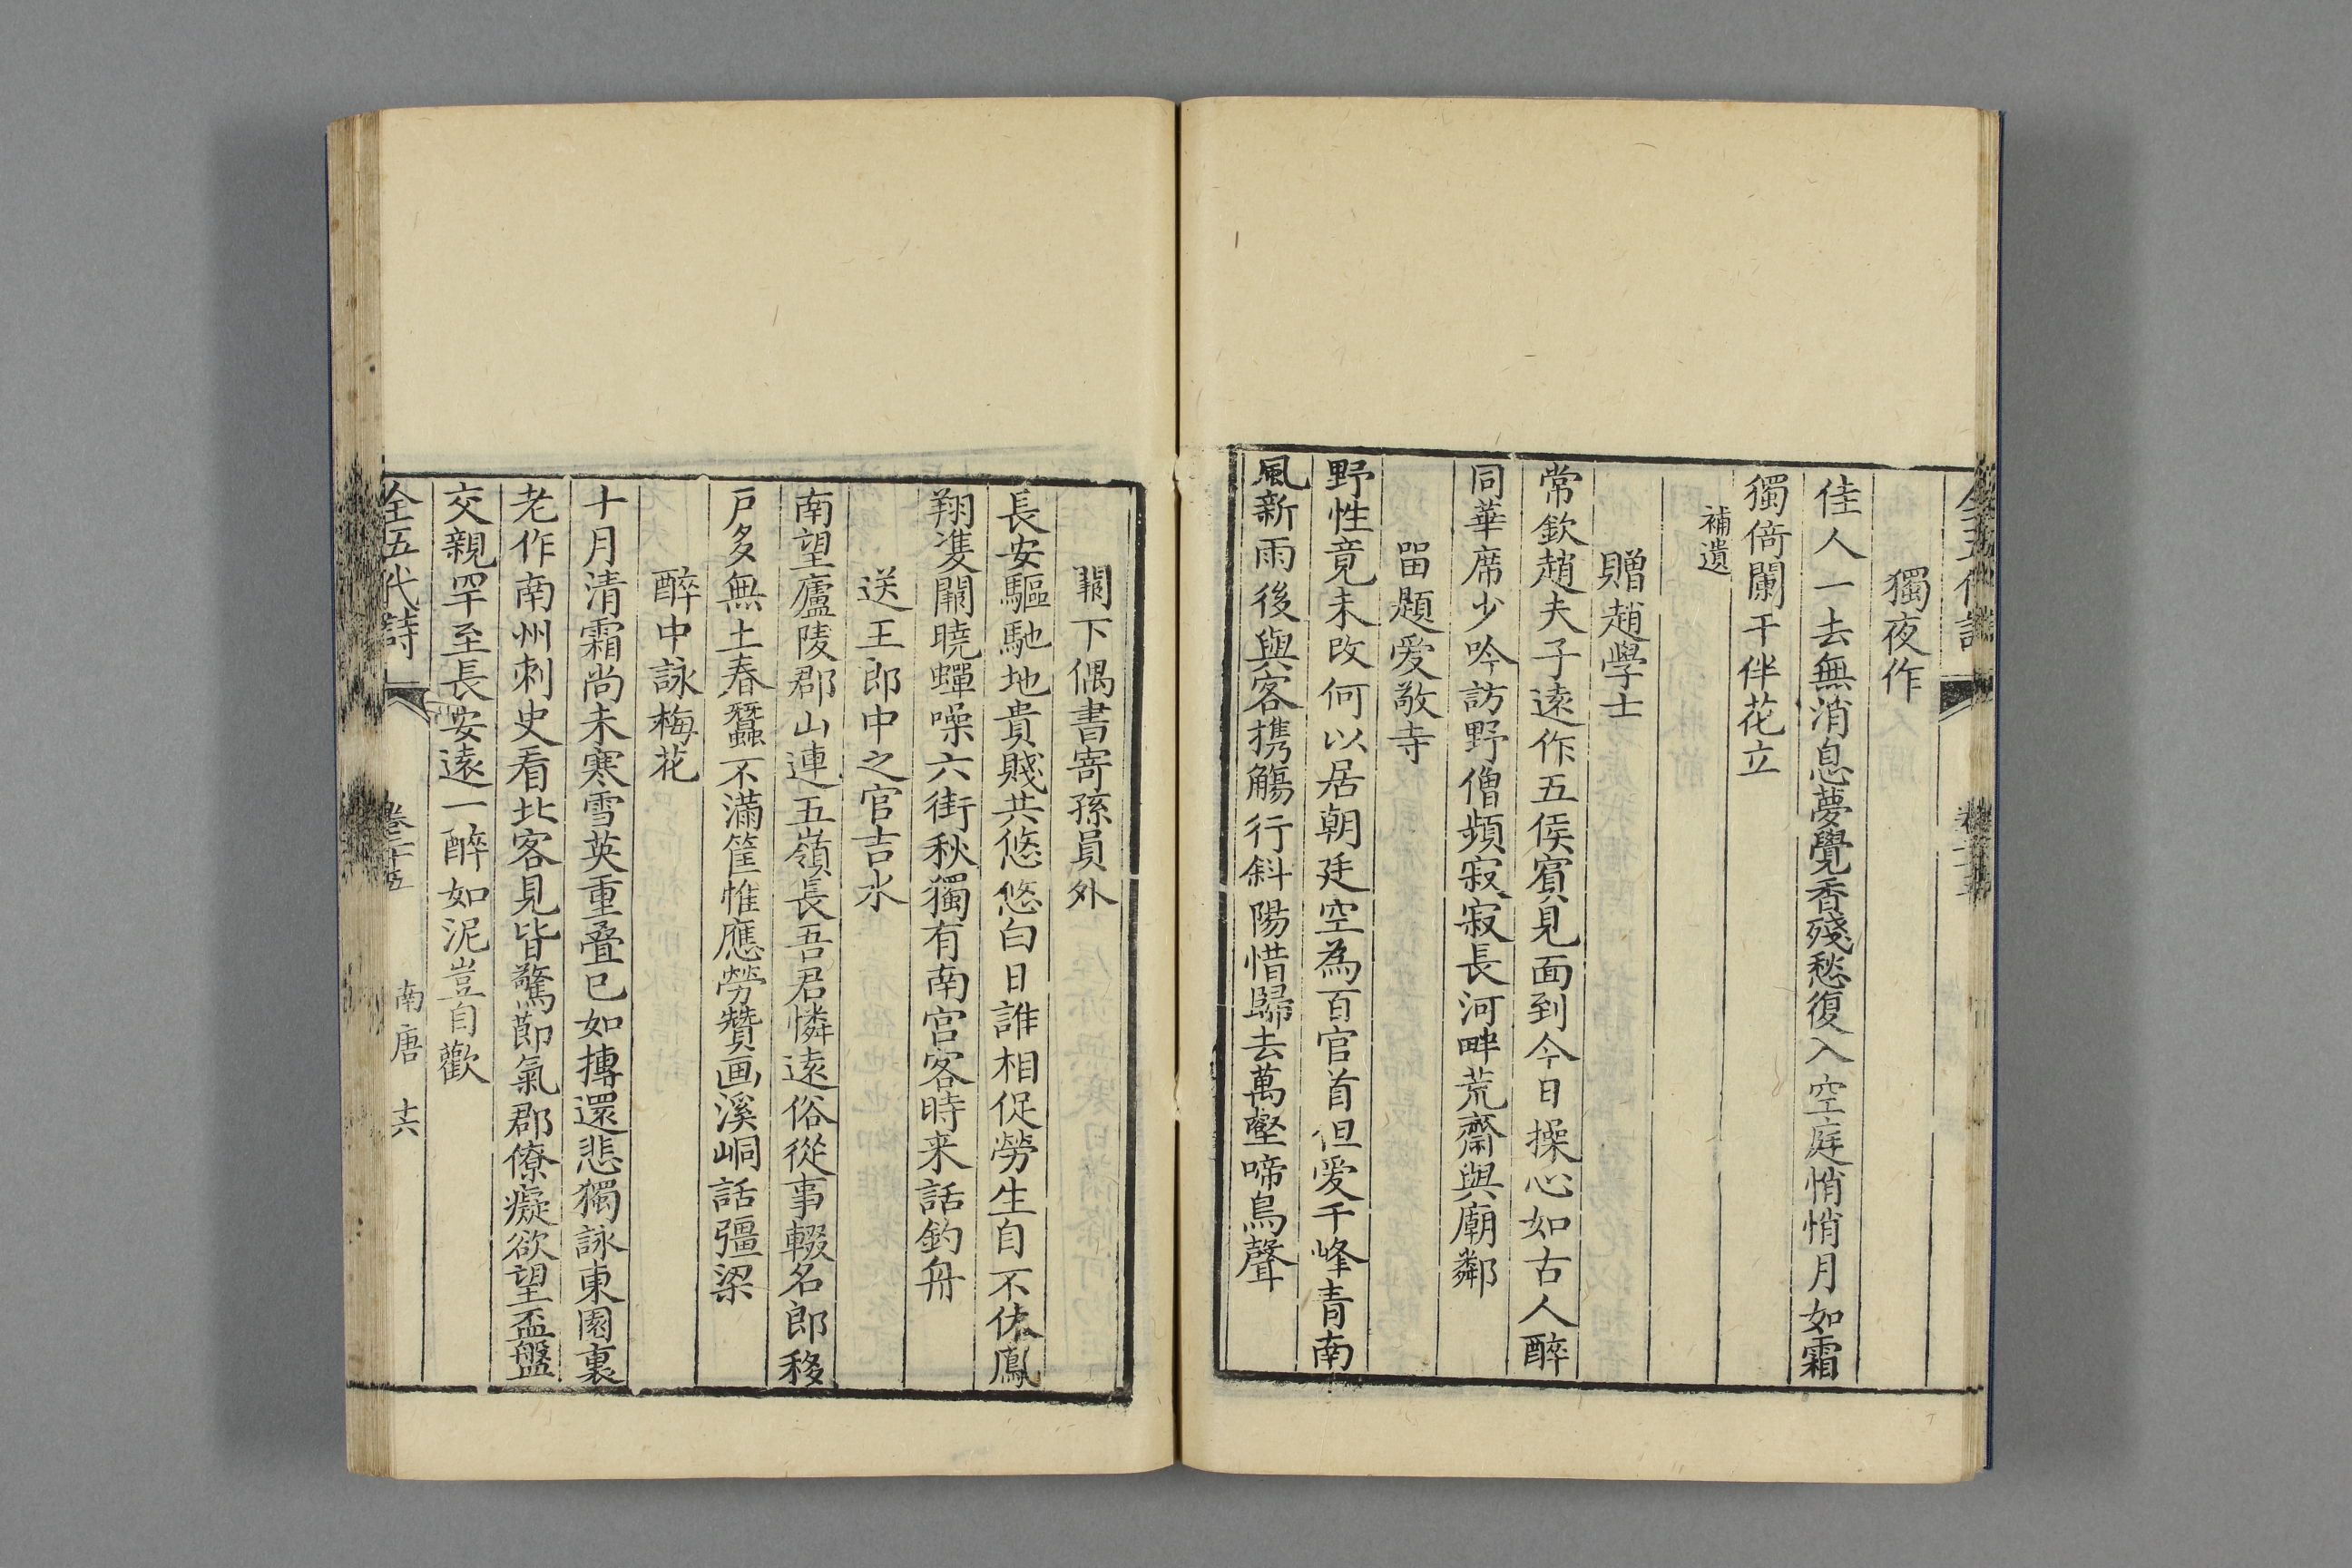 獨夜作
佳人一去無消息夢覺香殘愁復入空庭悄悄月如霜
獨倚闌干伴花立
補遺
贈趙學士
常欽趙夫子遠作五侯賓見面到今日操心如古人醉
同華席少吟訪野僧頻寂寂長河畔荒齋與廟鄰
畱題爱敬寺
野性竟未改何以居朝廷空為百官首但爱千峰青南
風新雨後與客携觴行斜陽惜歸去萬壑啼鳥聲
闕下偶書寄孫員外
長安驅馳地貴賤共悠悠白日誰相促勞生自不休鳳
翔㕠闕曉蟬噪六街秋獨有南宫客時来話釣舟
送王郎中之官吉水
南望廬陵郡山連五嶺長吾君憐遠俗從事輟名郎移
戶多無土春蠶不滿筐惟應勞贊画溪峒話彊梁
醉中詠梅花
十月清霜尚未寒雪英重叠已如摶還悲獨詠東園裏
老作南州刺史看北客見皆驚節氣郡僚癡欲望盃盤
交親罕至長安遠一醉如泥豈自歡
全五代詩 卷三十五 南唐 十六